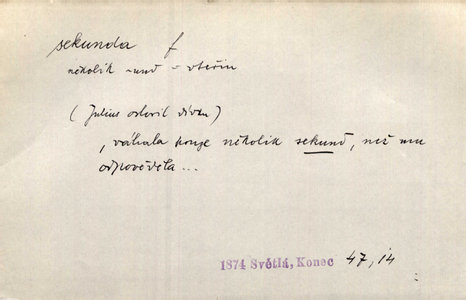 sekunda f
několik -und = vteřin
(Julius oslovil dívku)
, váhala pouze několik sekund, než mu
odpověděla...
1874 Světlá, Konec 47,14